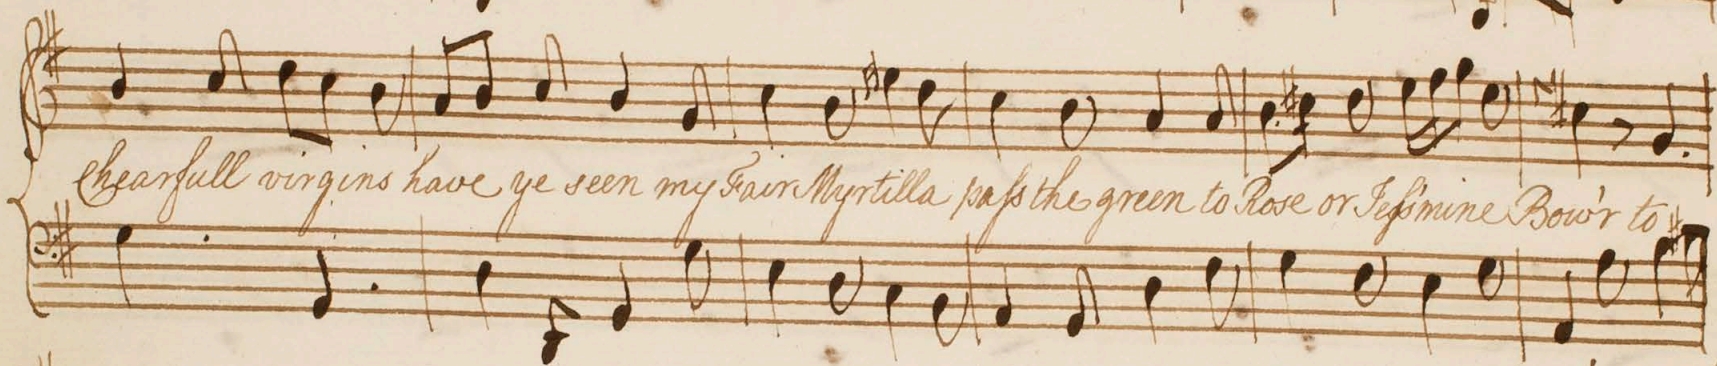 Chearfull virgins have ye seen my Fair Myrtilla paſs the green to Rose or Jeſs'mine Bow'r to